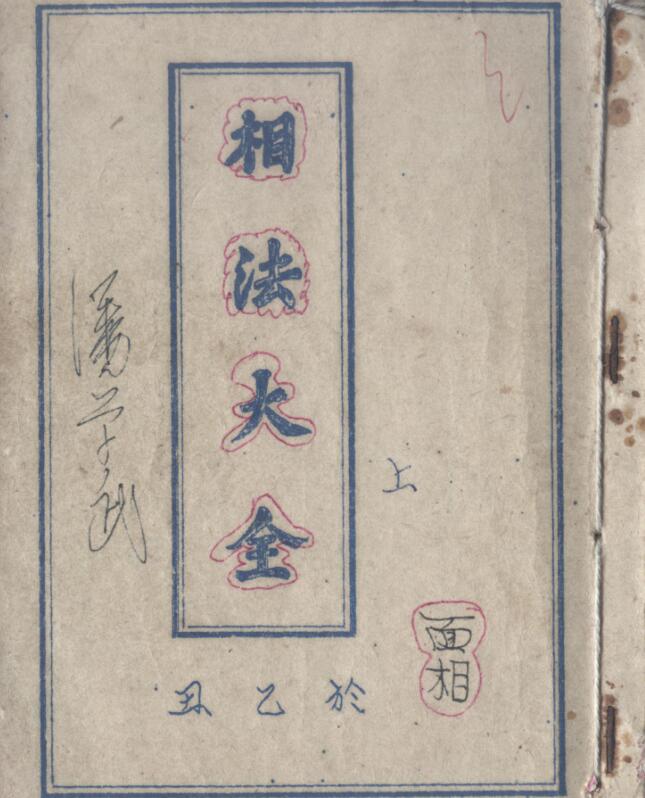 相法大全
上
面相
於乙丑